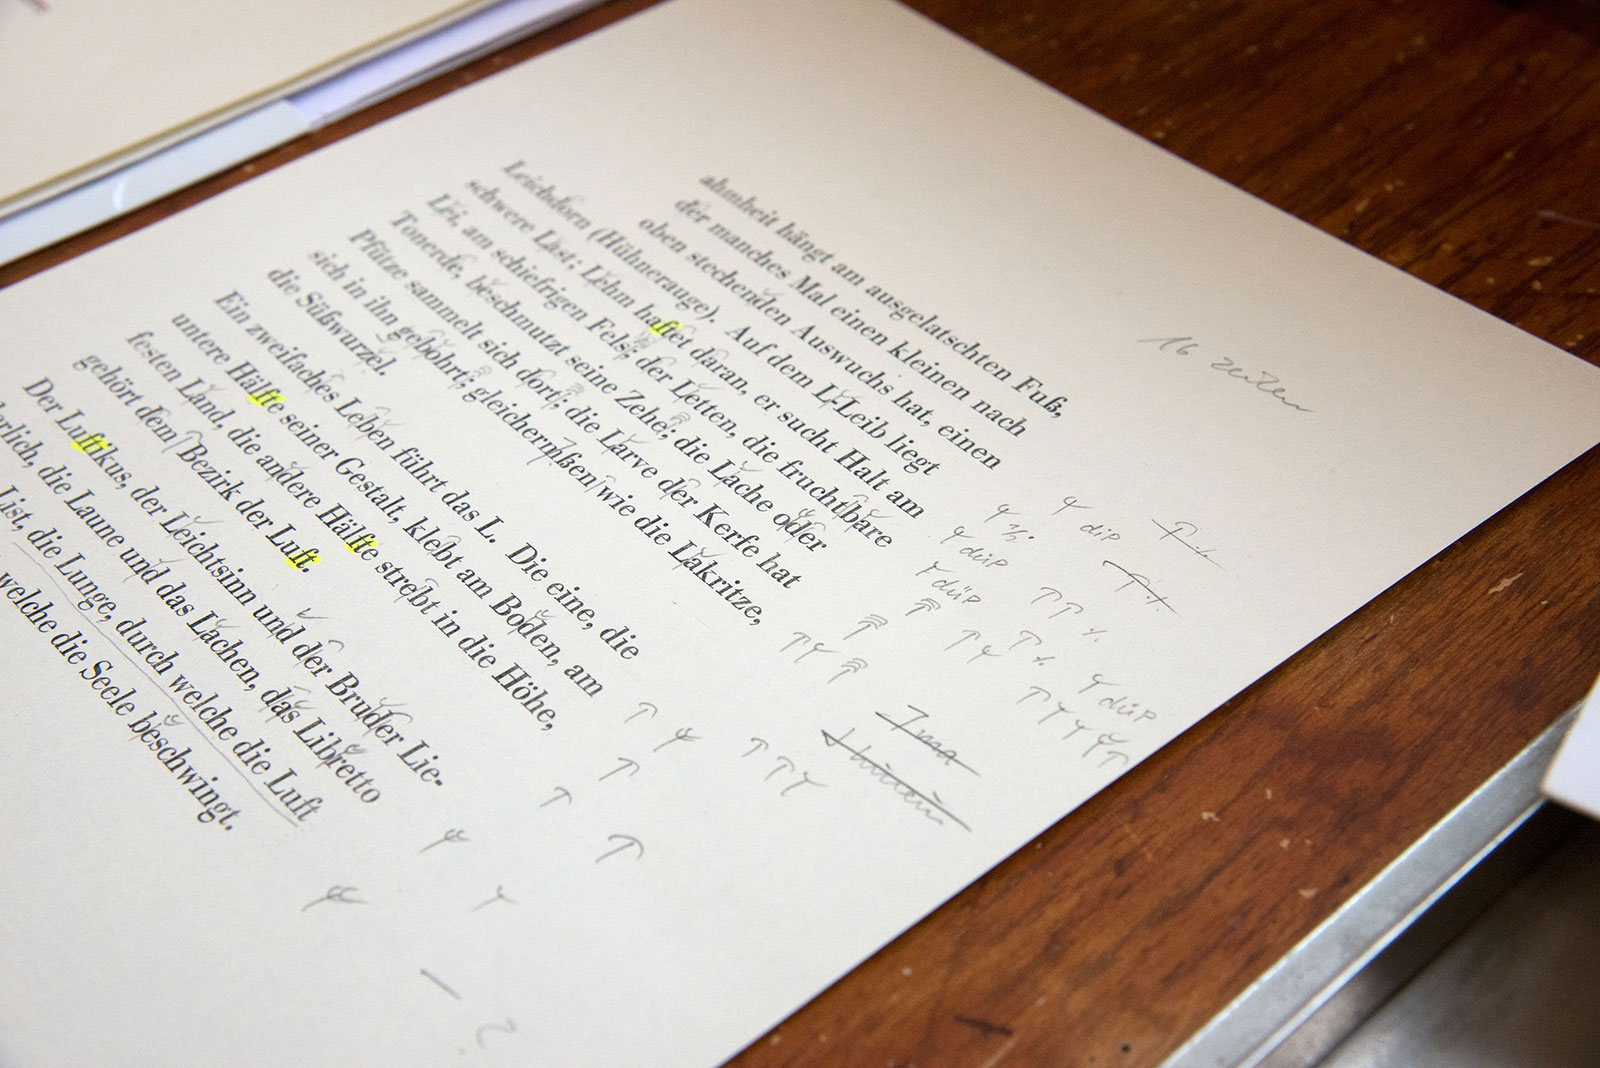 ahmheit hängt am ausgelatschten Fuß,
der manches Mal einen kleinen nach
oben stechenden Auswuchs hat, einen
Leichdorn (Hühnerauge). Auf dem L-Leib liegt
schwere Last; Lehm haftet daran, er sucht Halt am
Lei, am schiefrigen Fels; der Letten, die fruchtbare
Tonerde, beschmutzt seine Zehe; die Lache oder
Pfütze sammelt sich dort; die Larve der Kerfe hat
sich in ihn gebohrt; gleichermßen wie die Lakritze,
die Süßwurzel.
Ein zweifaches Leben führt das L. Die eine, die
untere Hälfte seiner Gestalt, klebt am Boden, am
festen Land, die andere Hälfte strebt in die Höhe,
gehört dem Bezirk der Luft.
Der Luftikus, der Leichtsinn und der Bruder Lie-
derlich, die Laune und das Lachen, das Libretto
List, die Lunge, durch welche die Luft
welche die Seele beschwingt.
16 Zeilen
düp
düp
düp
düp